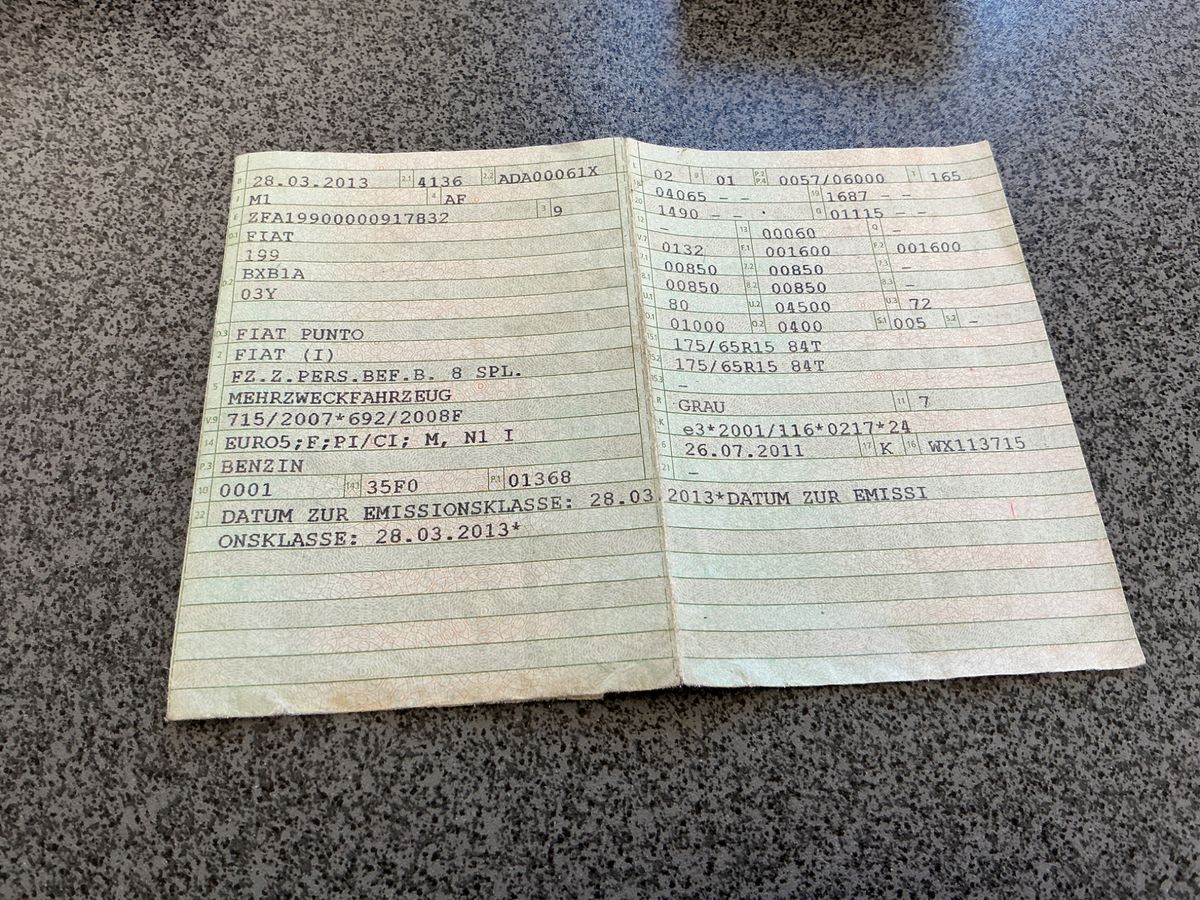 B 28.03.2013 2.1 4136 2.2 ADA00061X
J M1 4 AF
E ZFA19900000917832 3 9
D.1 FIAT
199
D.2 BXB1A
03Y
D.3 FIAT PUNTO
2 FIAT (I)
5 FZ.Z.PERS.BEF.B. 8 SPL.
MEHRZWECKFAHRZEUG
V.9 715/2007*692/2008F
14 EURO5;F;PI/CI; M, N1 I
P.3 BENZIN
10 0001 14.1 35F0 P.1 01368
22 DATUM ZUR EMISSIONSKLASSE: 28.03.2013*DATUM ZUR EMISSI
ONSKLASSE: 28.03.2013*
02 9 01 P.2 P.4 0057/06000 T 165
18 04065 - - 19 1687 - -
20 1490 - - G 01115 - -
12 - 13 00060 Q -
V.7 0132 F.1 001600 F.2 001600
7.1 00850 7.2 00850 7.3 -
8.1 00850 8.2 00850 8.3 -
U.1 80 U.2 04500 U.3 72
O.1 01000 O.2 0400 S.1 005 S.2 -
15.1 175/65R15 84T
15.2 175/65R15 84T
15.3 -
R GRAU 11 7
K e3*2001/116*0217*24
6 26.07.2011 17 K 16 WX113715
21 -